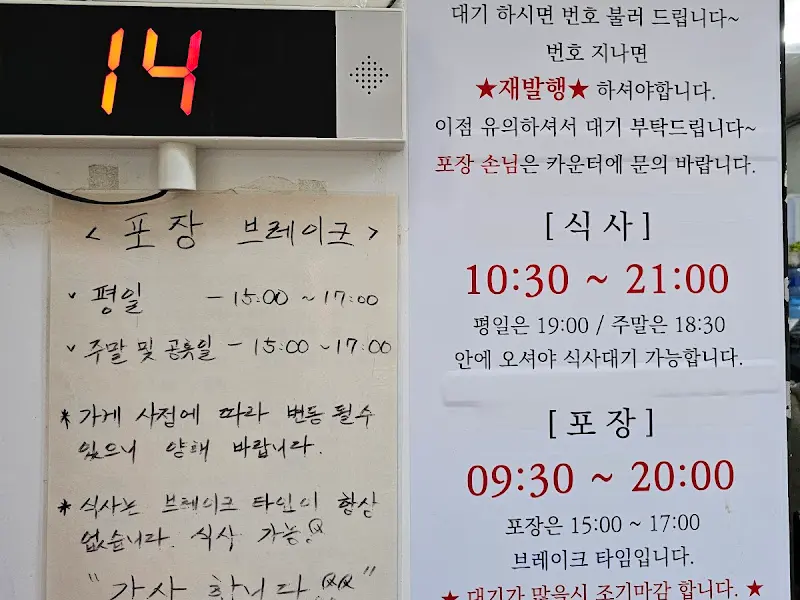 14
< 포장 브레이크 >
ˇ 평일 - 15:00 ~ 17:00
ˇ 주말 및 공휴일 - 15:00 ~ 17:00
* 가게 사정에 따라 변동 될수
있으니 양해 바랍니다.
* 식사는 브레이크 타임이 항상
없습니다. 식사 가능
"감사 합니다 "
대기 하시면 번호 불러 드립니다~
번호 지나면
★재발행★ 하셔야합니다.
이점 유의하셔서 대기 부탁드립니다~
포장 손님은 카운터에 문의 바랍니다.
[ 식 사 ]
10:30 ~ 21:00
평일은 19:00 / 주말은 18:30
안에 오셔야 식사대기 가능합니다.
[ 포 장 ]
09:30 ~ 20:00
포장은 15:00 ~ 17:00
브레이크 타임입니다.
★ 대기가 많을시 조기마감 합니다. ★